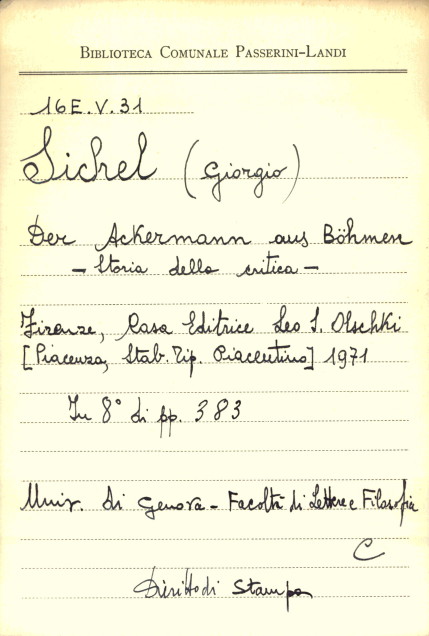 BIBLIOTECA COMUNALE PASSERINI-LANDI
16E.V.31
Sichel (Giorgio)
Der Ackermann aus Böhmen
- Storia della critica -
Firenze, Casa Editrice Leo S. Olschki
[Piacenza, Stab. Tip. Piacentino] 1971
In 8° di pp. 383
Univ. di Genova - Facoltà di Lettere e Filosofia
C
Diritto di Stampa